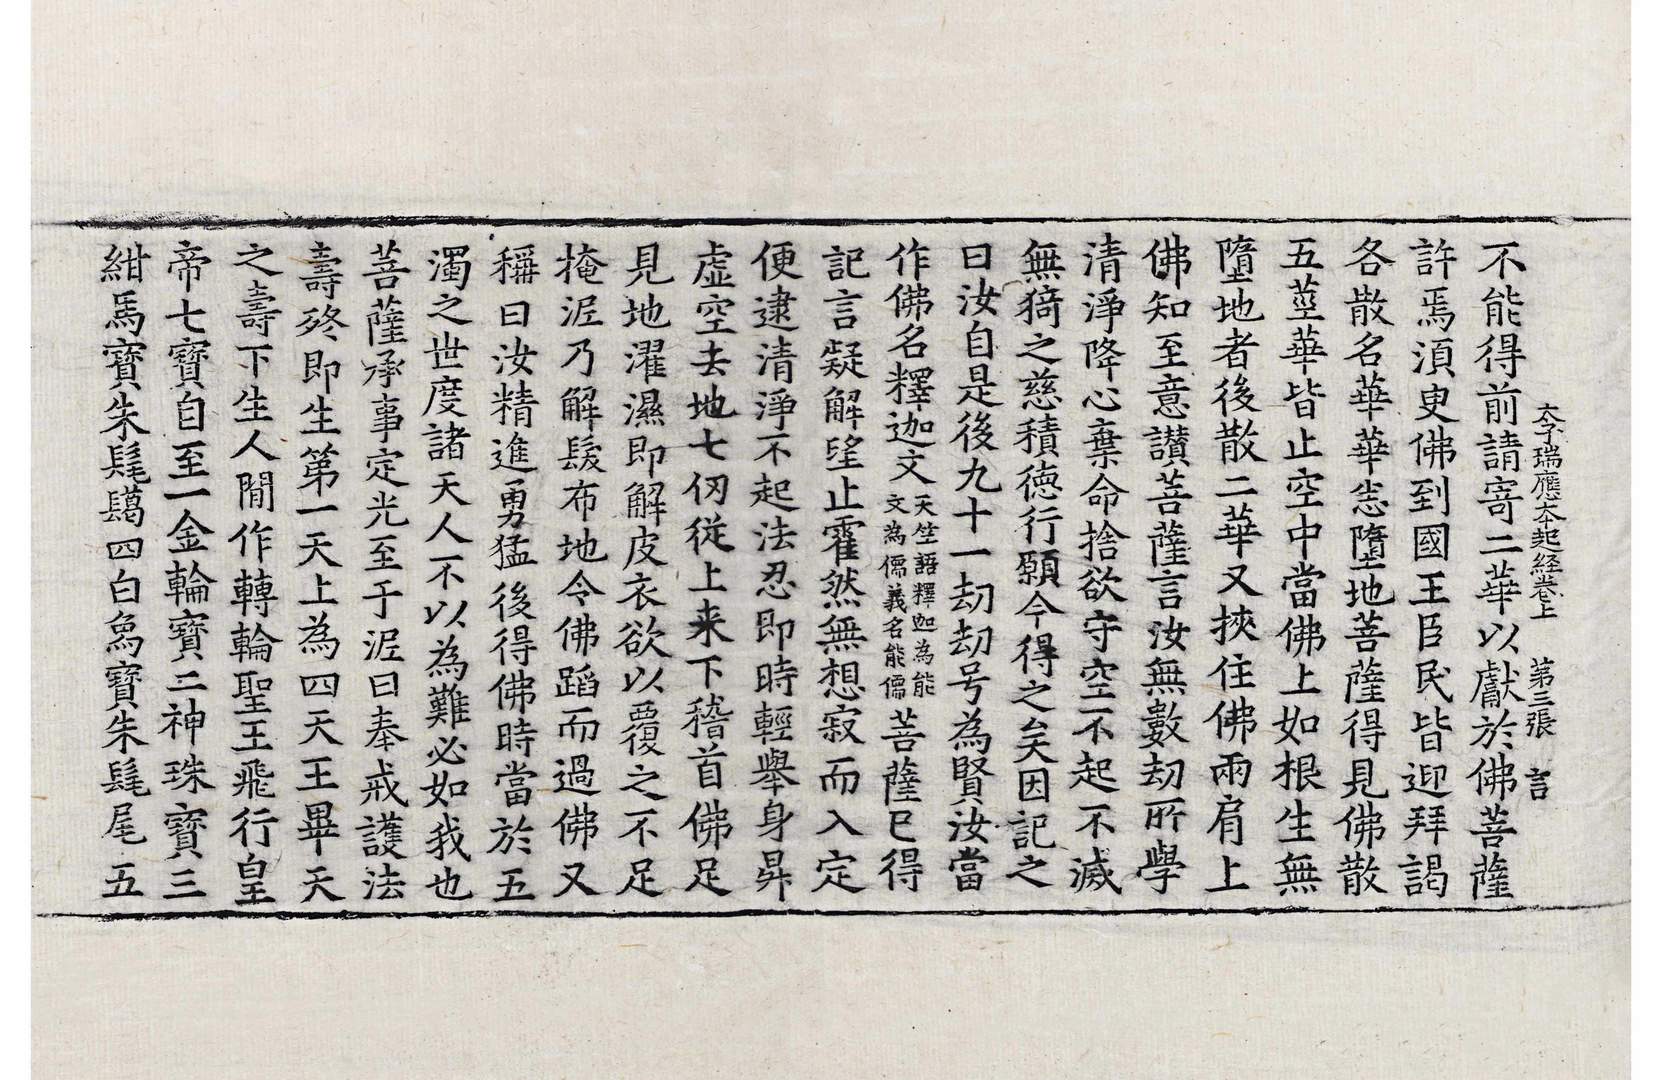 太子瑞應本起経卷上　第三張　言
不能得前請寄二華以獻於佛菩薩
許焉湏臾佛到國王臣民皆迎拜謁
各散名華華悉墮地菩薩得見佛散
五莖華皆止空中當佛上如根生無
墮地者後散二華又挾住佛兩肩上
佛知至意讃菩薩言汝無數劫所學
清淨降心棄命捨欲守空不起不滅
無猗之慈積德行願今得之矣因記之
曰汝自是後九十一劫劫号為賢汝當
作佛名釋迦文天竺語釋迦為能文為儒義名能儒菩薩已得
記言疑解望止霍然無想寂而入定
便逮清淨不起法忍即時輕舉身昇
虛空去地七仞從上来下稽首佛足
見地濯濕即解皮衣欲以覆之不足
掩泥乃解髮布地令佛蹈而過佛又
稱曰汝精進勇猛後得佛時當於五
濁之世度諸天人不以為難必如我也
菩薩承事定光至于泥曰奉戒護法
壽終即生第一天上為四天王畢天
之壽下生人閒作轉輪聖王飛行皇
帝七寶自至一金輪寶二神珠寶三
紺馬寶朱髦鬣四白象寶朱髦尾五